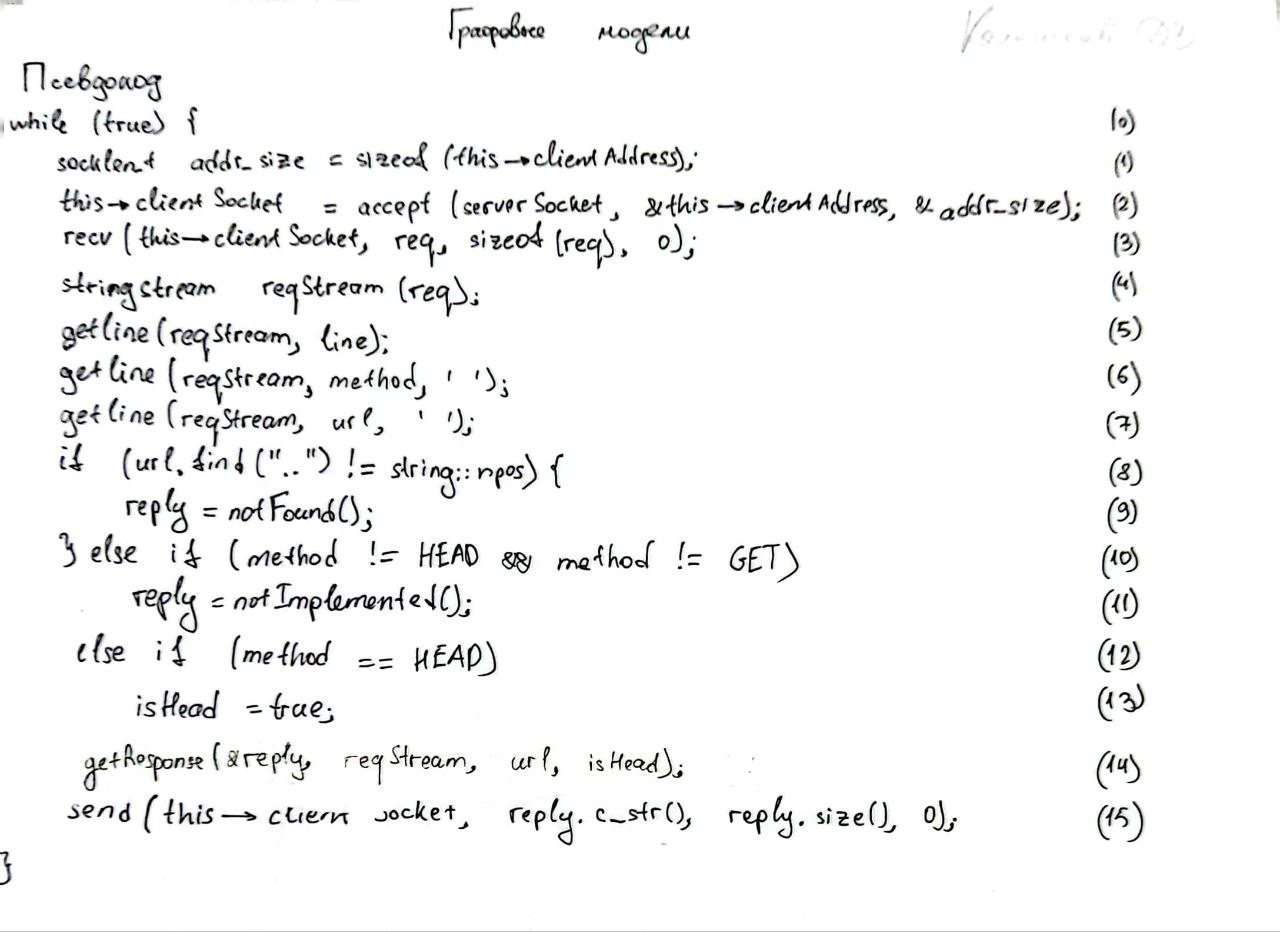 Графовые модели
Псевдокод
while (true) { (0)
socklent addr_size = sizeof (this→clientAddress); (1)
this→clientSocket = accept (serverSocket, &this→clientAddress, & addr_size); (2)
recv (this→clientSocket, req, sizeof (req), 0); (3)
stringstream reqStream (req); (4)
getline (reqStream, line); (5)
getline (reqStream, method, ' '); (6)
getline (reqStream, url, ' '); (7)
if (url.find ("..") != string::npos) { (8)
reply = notFound(); (9)
} else if (method != HEAD && method != GET) (10)
reply = notImplemented(); (11)
else if (method == HEAD) (12)
isHead = true; (13)
getResponse (&reply, reqStream, url, isHead); (14)
send (this→client socket, reply.c_str(), reply.size(), 0); (15)
}